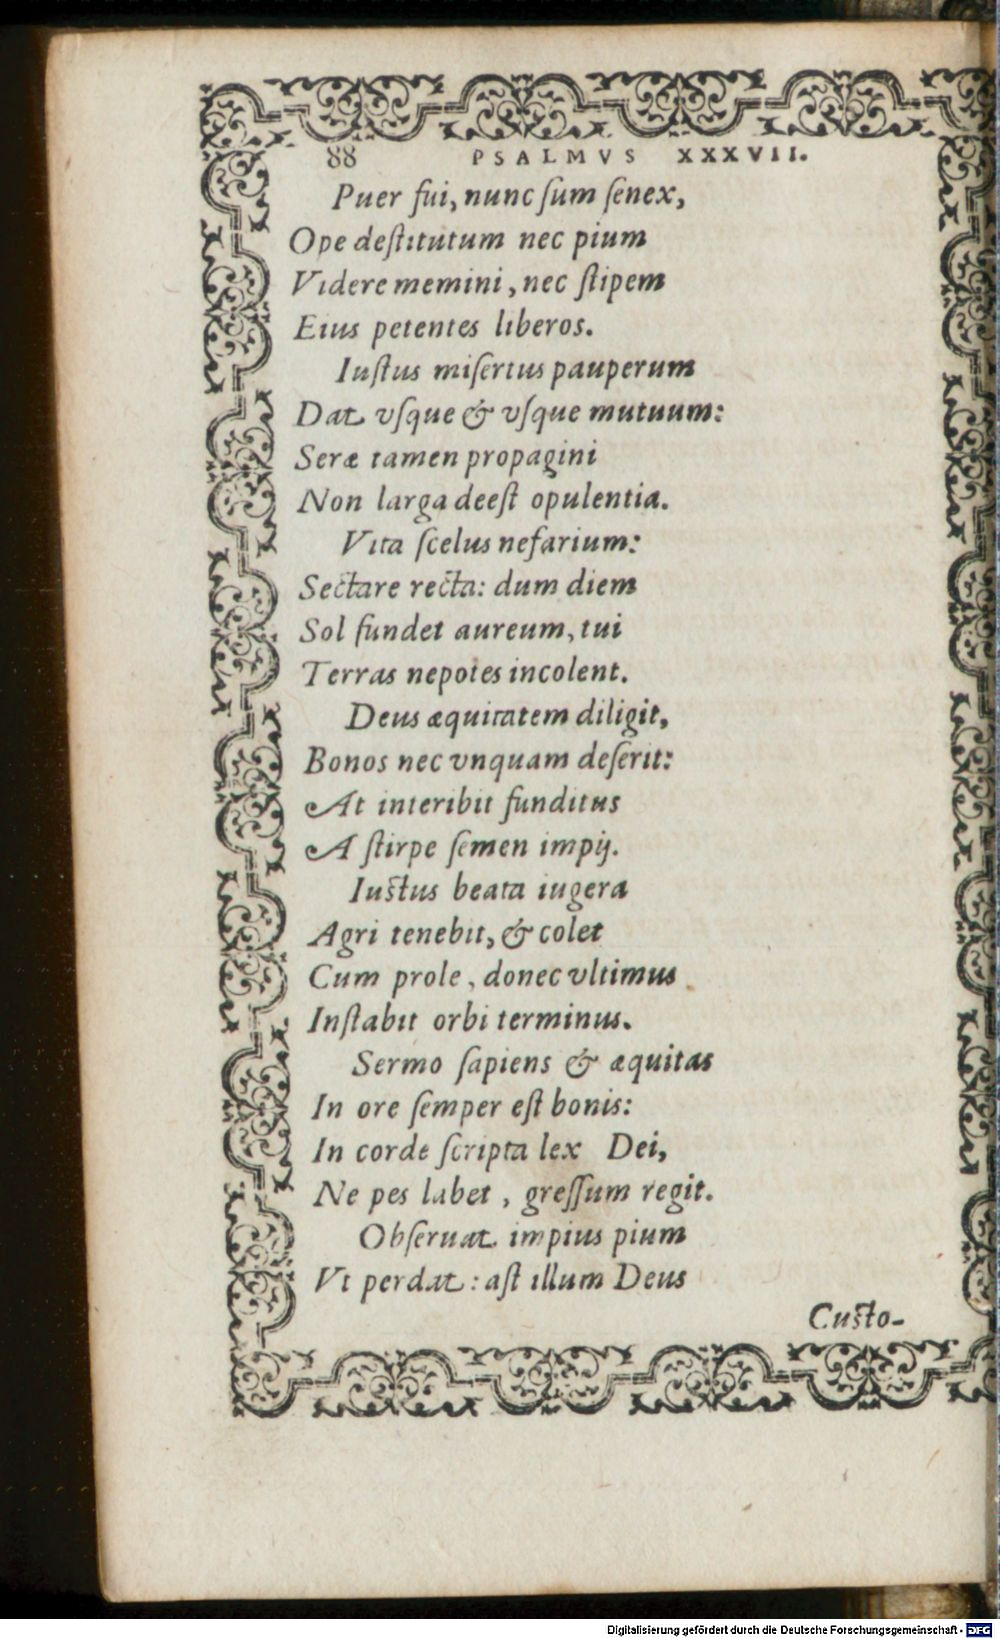 88 PSALMVS XXXVII.
Puer fui, nunc ſum ſenex,
Ope deſtitutum nec pium
Videre memini, nec ſtipem
Eius petentes liberos.
Iuſtus miſertus pauperum
Dat vſque & vſque mutuum:
Seræ tamen propagini
Non larga deeſt opulentia.
Vita ſcelus nefarium:
Sectare recta: dum diem
Sol fundet aureum, tui
Terras nepotes incolent.
Deus æquitatem diligit,
Bonos nec vnquam deſerit:
At interibit funditus
A ſtirpe ſemen impij.
Iustus beata iugera
Agri tenebit, & colet
Cum prole, donec vltimus
Inſtabit orbi terminus.
Sermo ſapiens & æquitas
In ore ſemper eſt bonis:
In corde ſcripta lex Dei,
Ne pes labet, greſſum regit.
Obſeruat impius pium
Vt perdat: aſt illum Deus
Custo-
Digitalisierung gefördert durch die Deutsche Forschungsgemeinschaft - DFG